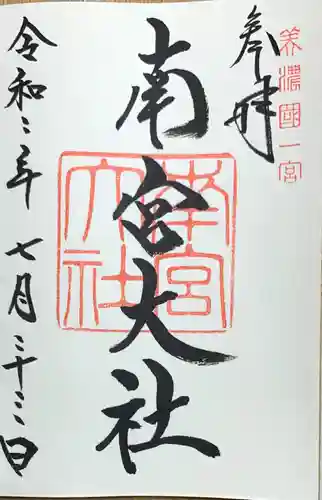 美濃國一宮
奉拝
南宮大社
南宮大社
令和二年七月二十三日